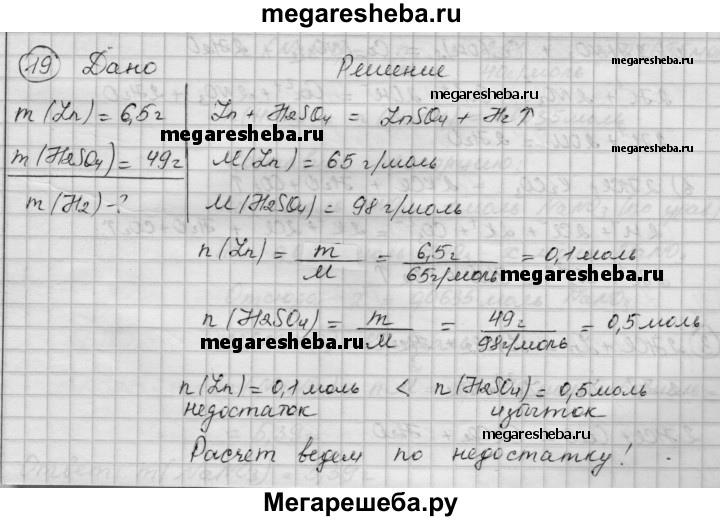 megaresheba.ru
19 Дано Решение
megaresheba.ru
megaresheba.ru
m(Zn) = 6,5г Zn + H2SO4 = ZnSO4 + H2↑
megaresheba.ru
megaresheba.ru
m(H2SO4) = 49г M(Zn) = 65 г/моль
m(H2) - ? M(H2SO4) = 98 г/моль
megaresheba.ru
n(Zn) = m/M = 6,5г/65г/моль = 0,1 моль
megaresheba.ru
n(H2SO4) = m/M = 49г/98г/моль = 0,5 моль
megaresheba.ru
megaresheba.ru
n(Zn) = 0,1 моль < n(H2SO4) = 0,5 моль
недостаток избыток
megaresheba.ru
Расчет ведем по недостатку!
Мегарешеба.ру